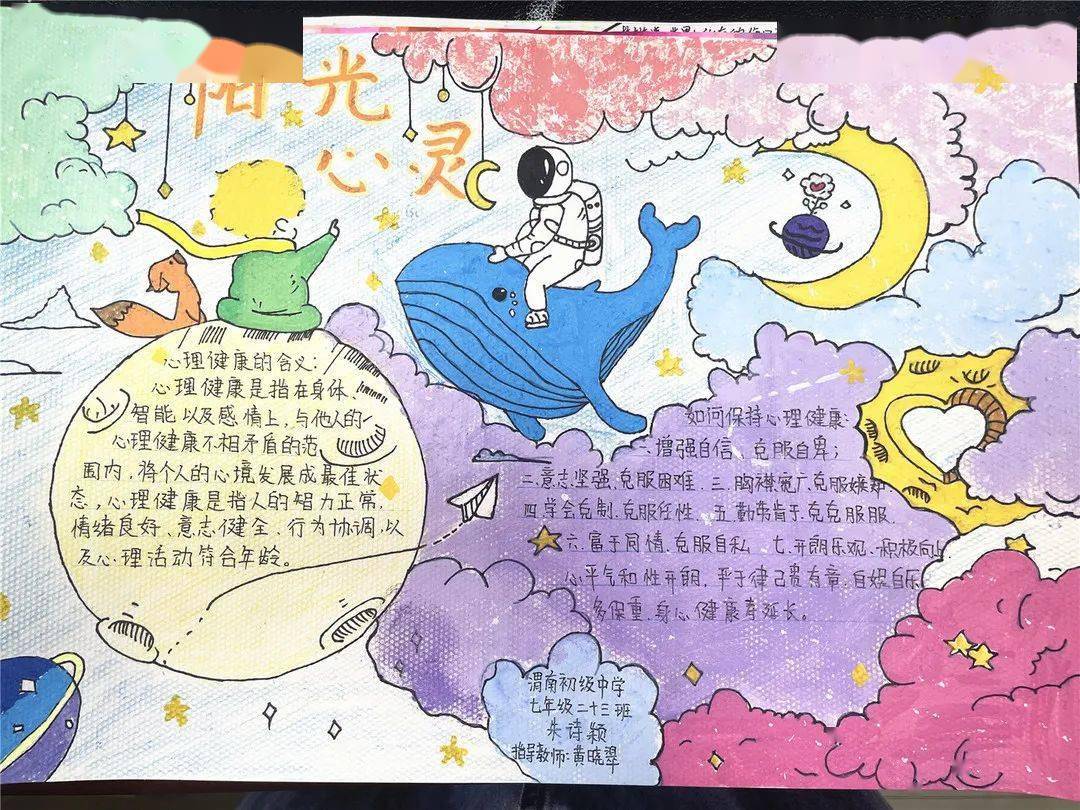 阳光
心灵
心理健康的含义：
心理健康是指在身体、
智能以及感情上，与他人的
心理健康不相矛盾的范
围内，将个人的心境发展成最佳状
态，心理健康是指人的智力正常，
情绪良好、意志健全、行为协调，以
及心理活动符合年龄。
如何保持心理健康：
一、增强自信、克服自卑；
二、意志坚强、克服困难、三、胸襟宽广、克服嫉妒、
四、学会克制、克服任性、五、勤劳肯于、克克服服、
六、富于同情、克服自私 七、开朗乐观、积极向上
心平气和性开朗，严于律己贵有章，自娱自乐
多保重，身心健康寿延长。
渭南初级中学
七年级二十三班
朱诗颖
指导教师：黄晓翠